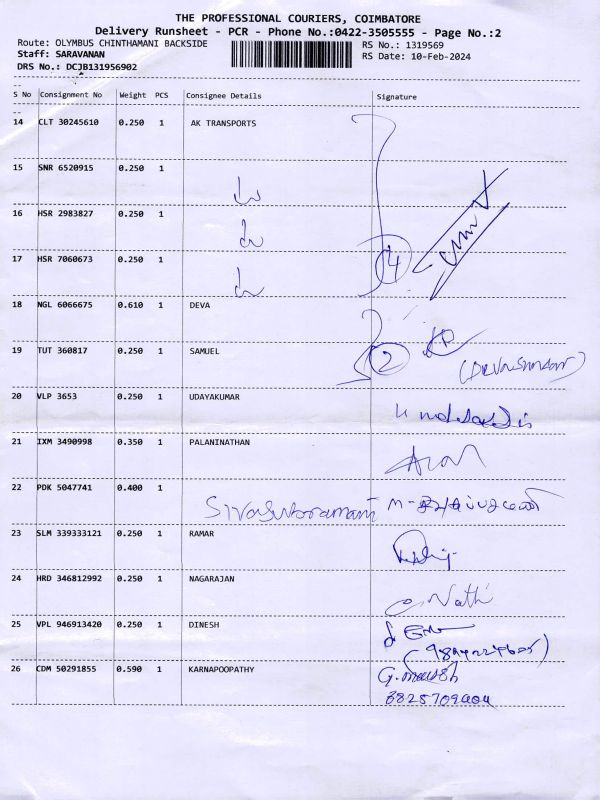 THE PROFESSIONAL COURIERS, COIMBATORE
Delivery Runsheet - PCR - Phone No.:0422-3505555 - Page No.:2
Route: OLYMBUS CHINTHAMANI BACKSIDE
RS No.: 1319569
Staff: SARAVANAN
RS Date: 10-Feb-2024
DRS No.: DCJB131956902
S No Consignment No Weight PCS Consignee Details Signature
14 CLT 30245610 0.250 1 AK TRANSPORTS
15 SNR 6520915 0.250 1
16 HSR 2983827 0.250 1
17 HSR 7060673 0.250 1 4
18 NGL 6066675 0.610 1 DEVA
19 TUT 360817 0.250 1 SAMUEL 2
20 VLP 3653 0.250 1 UDAYAKUMAR
21 IXM 3490998 0.350 1 PALANINATHAN
22 PDK 5047741 0.400 1 Sivasubramani
23 SLM 339333121 0.250 1 RAMAR
24 HRD 346812992 0.250 1 NAGARAJAN Nathi
25 VPL 946913420 0.250 1 DINESH
26 CDM 50291855 0.590 1 KARNAPOOPATHY